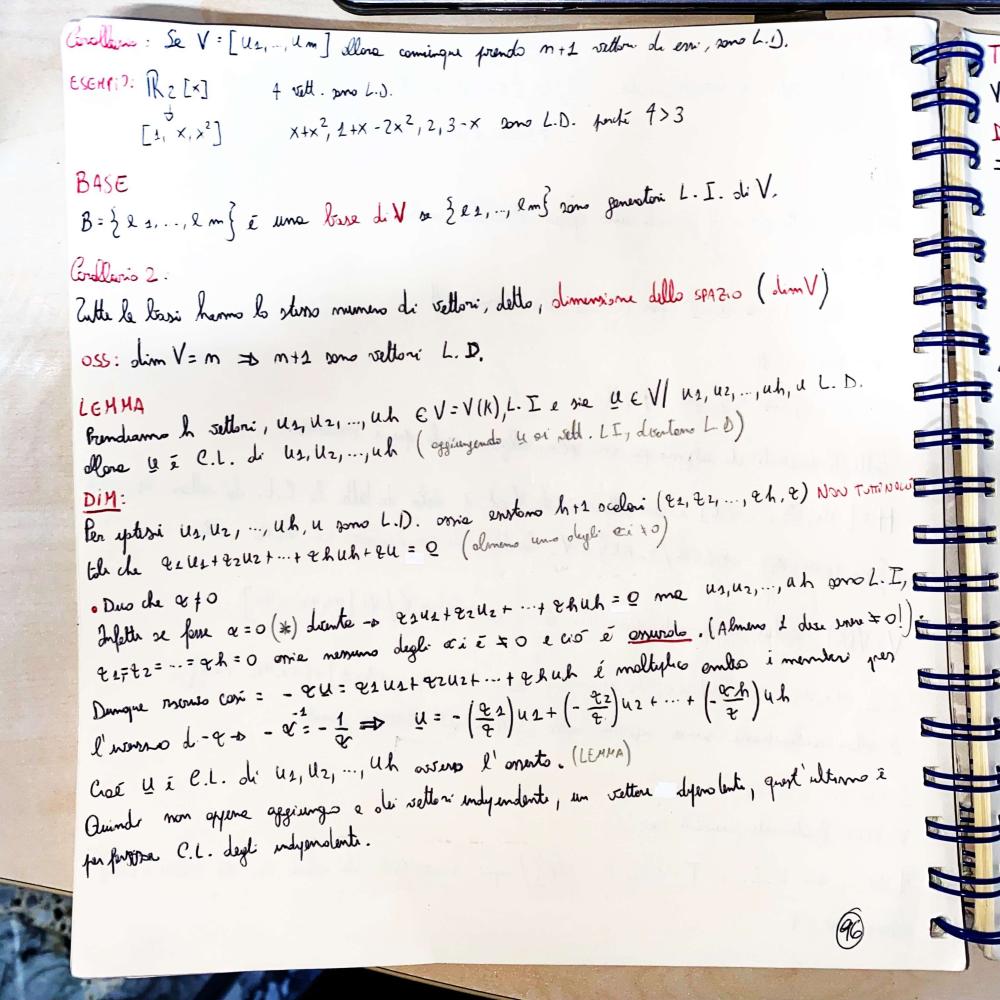 Corollario: Se V = [u1,..,um] allora comunque prendo n+1 vettori di essi, sono L.D.
ESEMPIO: ℝ2[x] 4 vett. sono L.D.
↓
[1, x, x²] x+x², 1+x-2x², 2, 3-x sono L.D. perché 4>3
BASE
B = {e1,..., em} è una base di V se {e1,..,em} sono generatori L.I. di V.
Corollario 2:
Tutte le basi hanno lo stesso numero di vettori, detto, dimensione dello SPAZIO (dim V)
OSS: dim V = n ⇒ n+1 sono vettori L.D.
LEMMA
Prendiamo h vettori, u1, u2, ..., uh ∈ V = V(K), L.I e sia u ∈ V/ u1, u2, ..., uh, u L.D.
allora u è C.L. di u1, u2, ..., uh (aggiungendo u ai vett. LI, diventano LD)
DIM:
Per ipotesi u1, u2, ..., uh, u sono L.D. ossia esistono h+1 scalari (α1, α2, ..., αh, α) NON TUTTI NULLI
tali che α1u1+α2u2+...+αhuh+αu = 0 (almeno uno degli αi ≠0)
• Dico che α≠0
Infatti se fosse α=0 (*) diventa → α1u1+α2u2+...+αhuh = 0 ma u1,u2,...,uh sono L.I,
α1=α2=...=αh=0 ossia nessuno degli αi è ≠0 e ciò è assurdo. (Almeno 1 deve essere ≠0!).
Dunque riscrivo così = -αu = α1u1+α2u2+...+αhuh è moltiplico ambo i membri per
l'inverso di -α → -α⁻¹ = -1/α ⇒ u = -(α1/α)u1+(-α2/α)u2+...+(-αh/α)uh
Cioè u è C.L. di u1, u2, ..., uh ovvero l'asserto. (LEMMA)
Quindi non appena aggiungo a dei vettori indipendente, un vettore dipendente, quest'ultimo è
per forza C.L. degli indipendente.
96